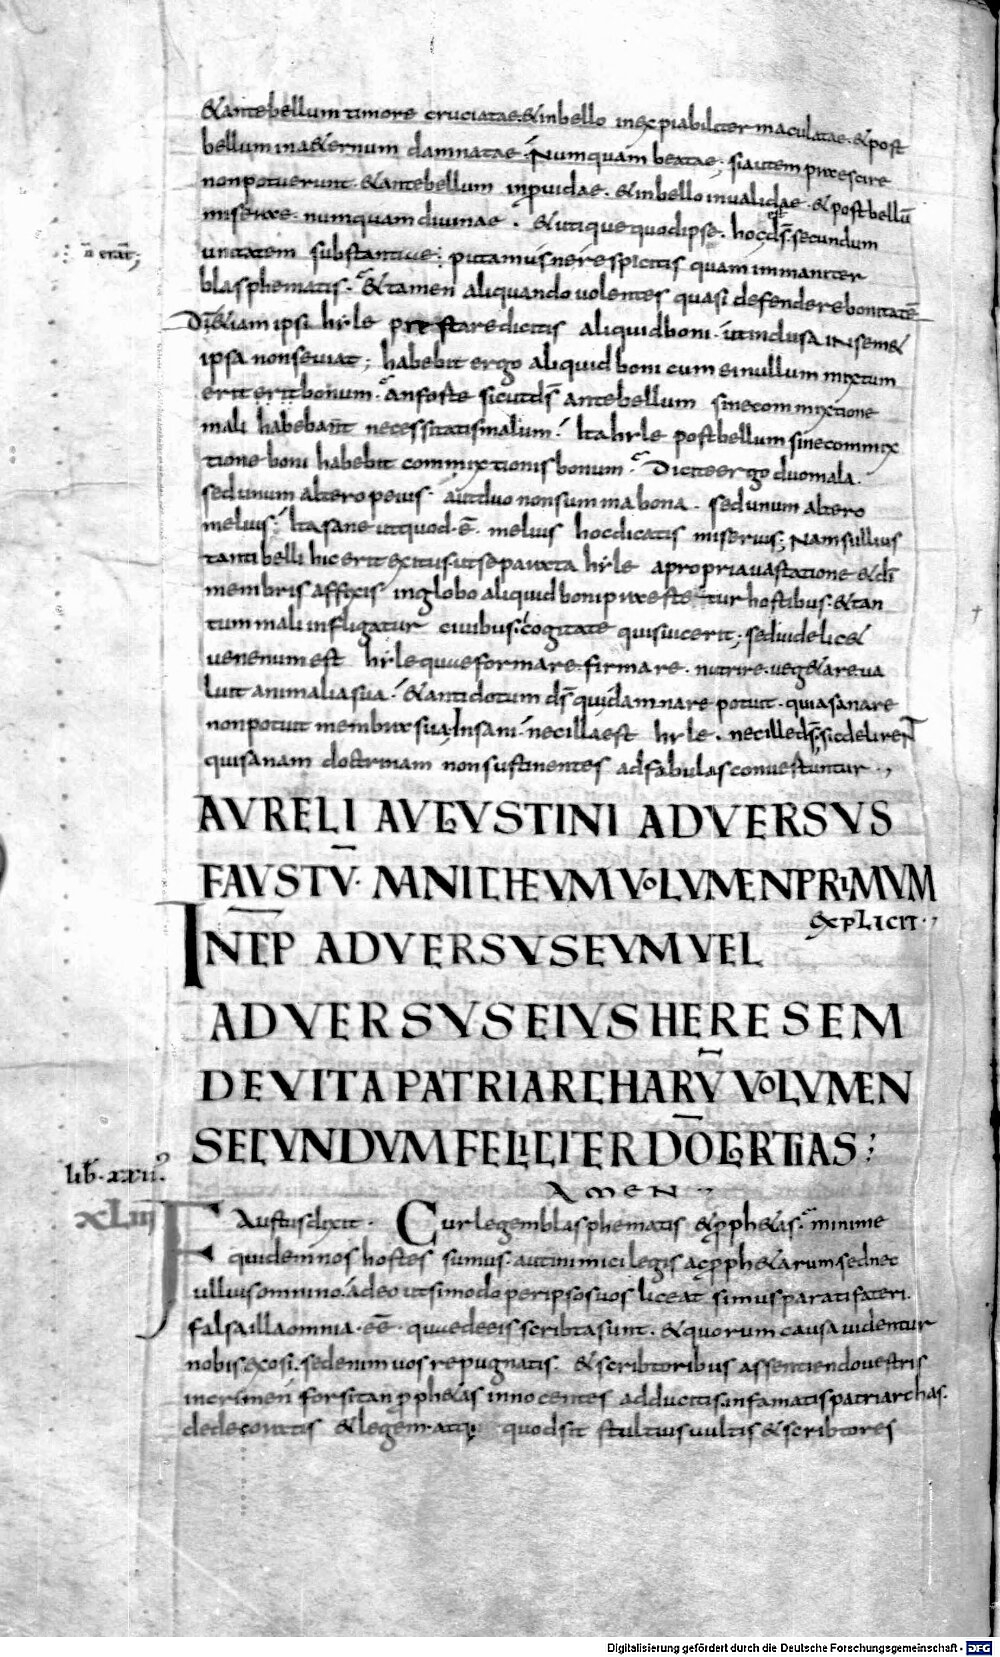 &ante bellum timore cruciatae. & in bello inexpiabiliter maculatae. & post
bellum in a&ernum damnatae. Numquam beatae; si autem praescire
non potuerunt. & ante bellum inprouidae. & in bello inualidae. & post bellū
miserae. numquam diuinae. & utique quod ipse. hoc d̄s. secundum
n̄ erat;
unitatem substantiae; putamus ne respicitis quam immaniter
blasphematis. & tamen aliquando uolentes quasi defendere bonitatē
Di &iam ipsi hẏle praestare dicitis aliquid boni. ut inclusa in sem&
ipsa non seuiat; habebit ergo aliquid boni cum ei nullum mixtum
erit erit bonum. An forte sicut d̄s ante bellum sine commixtione
mali habebant necessitatis malum. Ita hẏle post bellum sine commix
tione boni habebit commixtionis bonum. Dicite ergo duo mala.
sed unum altero peius. aut duo non summa bona. sed unum altero
melius; Ita sane ut quod .ē. melius hoc dicatis miserius; Nam si illius
tanti belli hic erit exitus. ut separata hẏle a propria uastatione & d̄i
membris affixis in globo aliquid boni praestetur hostibus. & tan
tum mali infligatur ciuibus. cogitate quis uicerit; sed uidelic&
uenenum est hẏle quae formare. firmare. nutrire. ueg&are ua
luit animalia sua. & antidotum d̄s qui damnare potuit. quia sanare
non potuit membra sua. Insani. nec illa est hẏle. nec ille d̄s. sic delirent
qui sanam doctrinam non sustinentes ad fabulas conuertuntur.,
AVRELI AVGVSTINI ADVERSVS
FAVSTV̄. MANICHEVM VOLVMEN PRIMVM
EXPLICIT.,
INC̄P ADVERSVS EVM VEL
ADVERSVS EIVS HERESEM
DE VITA PATRIARCHARV̄ VOLVMEN
SECVNDVM FELICITER DŌ GRTIAS;
AMEN
lib. xxii.
xLiii
Faustus dixit. Cur legem blasphematis & pph&as. minime
quidem nos hostes sumus. aut inimici legis ac pph&arum sed nec
ullius omnino. adeo ut si modo per ipsos uos liceat simus parati fateri.
falsa illa omnia .eē. quae de eis scribta sunt. & quorum causa uidentur
nobis exosi. sed enim uos repugnatis. & scribtoribus assentiendo uestris
in crimen forsitan pph&as innocentes adducitis. infamatis patriarchas.
dedecoratis & legem. atq; quod sit stultius uultis & scribtores
Digitalisierung gefördert durch die Deutsche Forschungsgemeinschaft - DFG